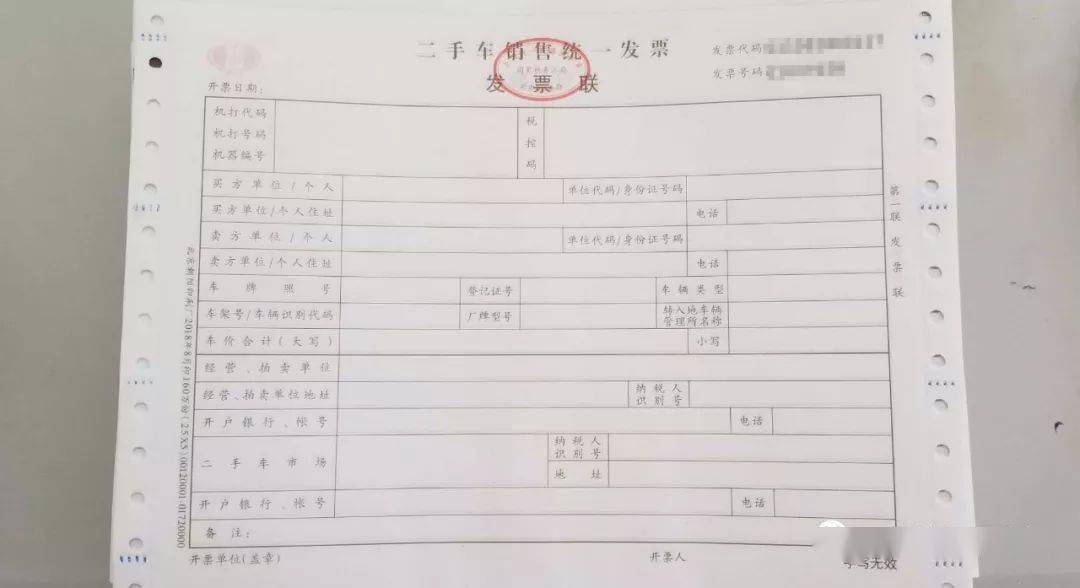 二手车销售统一发票
发票联
发票代码
发票号码
开票日期：
机打代码
机打号码
机器编号
税控码
买方单位/个人 单位代码/身份证号码
买方单位/个人住址 电话
卖方单位/个人 单位代码/身份证号码
卖方单位/个人住址 电话
车牌照号 登记证号 车辆类型
车架号/车辆识别代码 厂牌型号 转入地车辆管理所名称
车价合计(大写) 小写
经营、拍卖单位
经营、拍卖单位地址 纳税人识别号
开户银行、帐号 电话
二手车市场 纳税人识别号
地址
开户银行、帐号 电话
备注：
开票单位(盖章) 开票人
无效
第一联 发票联
2018年8月印160万份(25X5)00120001-01720000